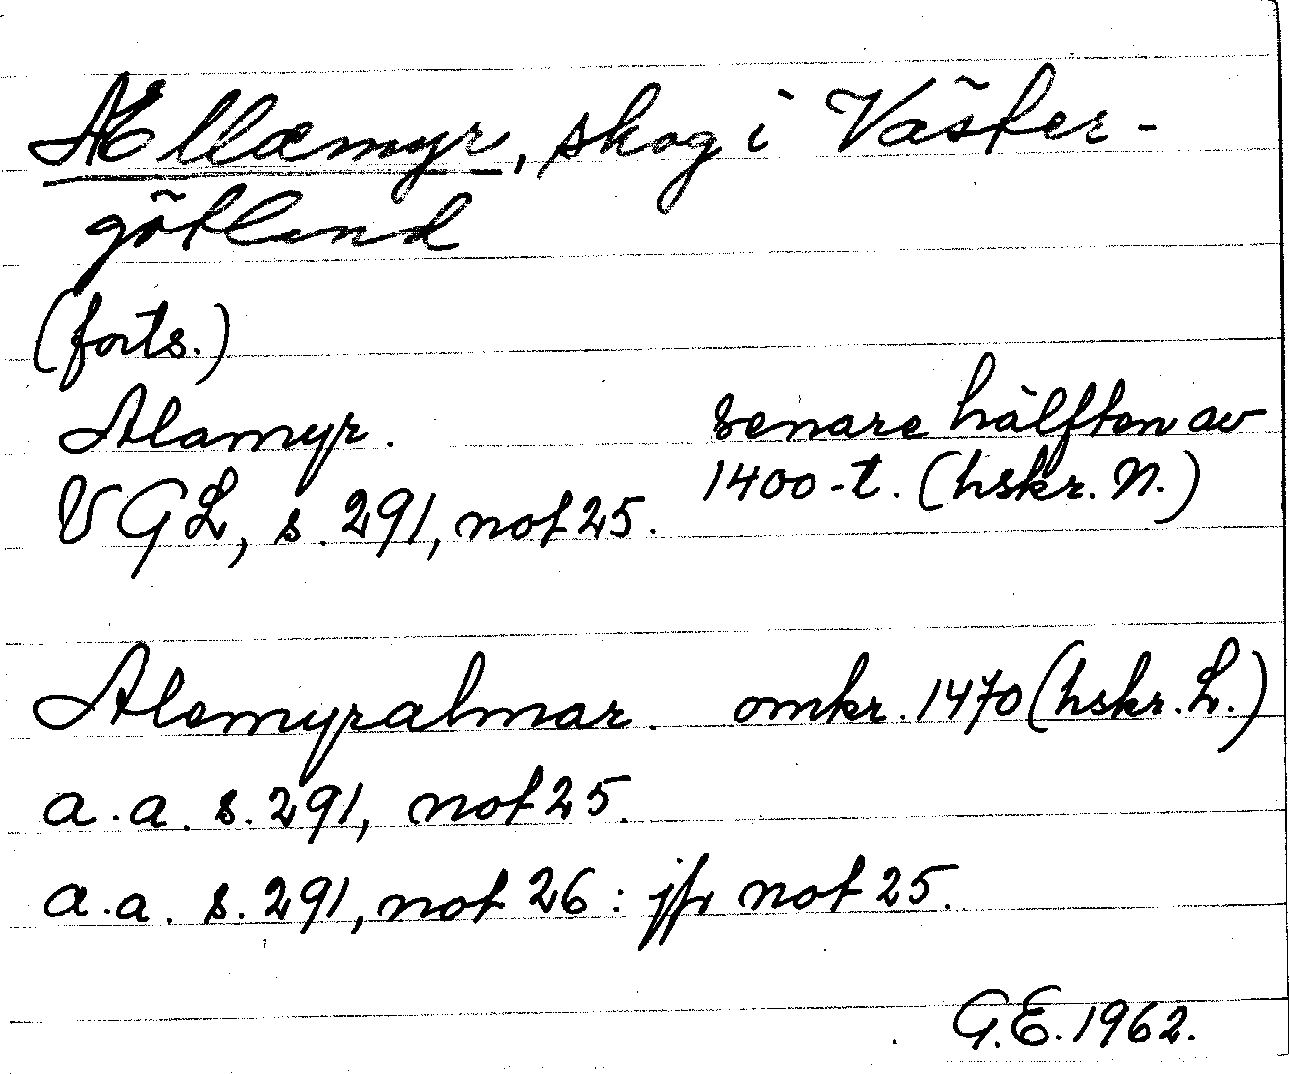 Ællæmyr, skog i Väster-
götland
(forts.)
Alamyr. senare hälften av
1400-t. (hskr. N.)
VGL, s. 291, not 25.
Alemyralmar. omkr. 1470 (hskr. L.)
a.a. s. 291, not 25.
a.a. s. 291, not 26: jfr not 25.
G.E. 1962.